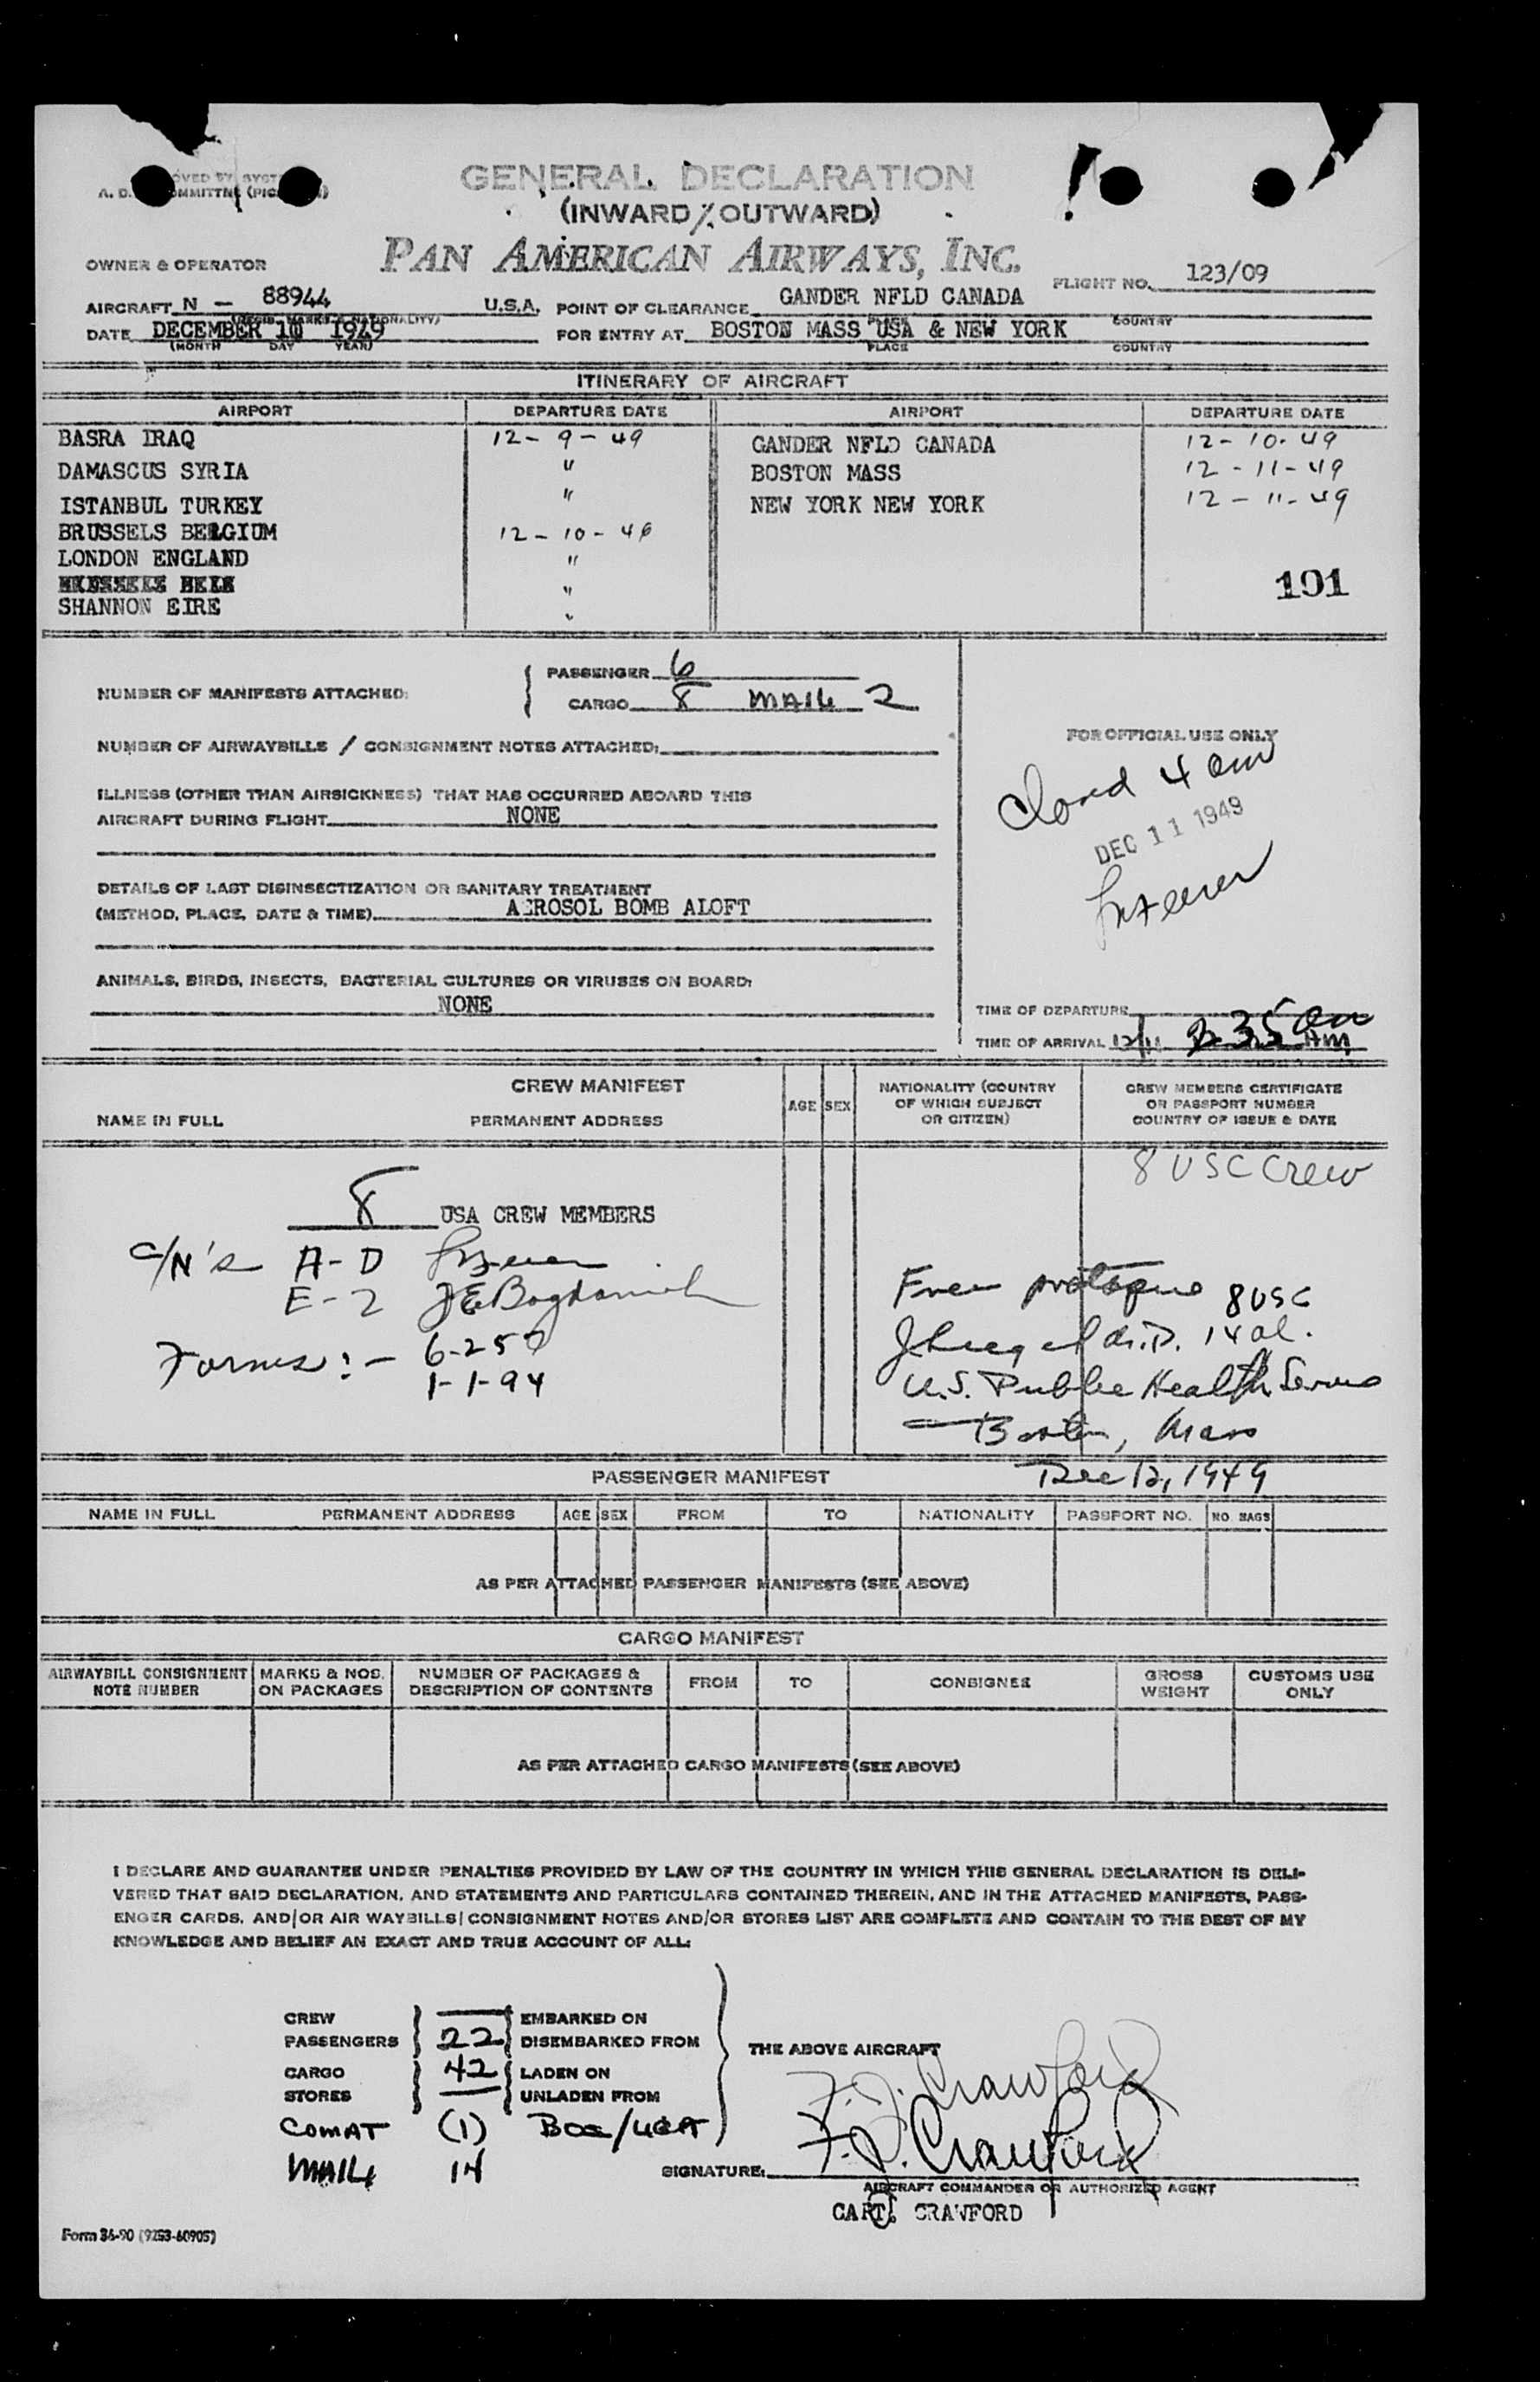 GENERAL DECLARATION
(INWARD / OUTWARD)
PAN AMERICAN AIRWAYS, INC.
OWNER & OPERATOR
FLIGHT NO. 123/09
AIRCRAFT N - 88944 U.S.A. POINT OF CLEARANCE GANDER NFLD CANADA
DATE DECEMBER 10 1949 FOR ENTRY AT BOSTON MASS USA & NEW YORK
(MONTH DAY YEAR) PLACE COUNTRY
ITINERARY OF AIRCRAFT
AIRPORT DEPARTURE DATE AIRPORT DEPARTURE DATE
BASRA IRAQ 12-9-49 GANDER NFLD CANADA 12-10-49
DAMASCUS SYRIA " BOSTON MASS 12-11-49
ISTANBUL TURKEY " NEW YORK NEW YORK 12-11-49
BRUSSELS BELGIUM 12-10-49
LONDON ENGLAND "
"
SHANNON EIRE "
101
NUMBER OF MANIFESTS ATTACHED: PASSENGER 6
CARGO 8 MAIL 2
NUMBER OF AIRWAYBILLS / CONSIGNMENT NOTES ATTACHED:
FOR OFFICIAL USE ONLY
4 am
DEC 11 1949
ILLNESS (OTHER THAN AIRSICKNESS) THAT HAS OCCURRED ABOARD THIS
AIRCRAFT DURING FLIGHT NONE
DETAILS OF LAST DISINSECTIZATION OR SANITARY TREATMENT
(METHOD, PLACE, DATE & TIME) AEROSOL BOMB ALOFT
ANIMALS, BIRDS, INSECTS, BACTERIAL CULTURES OR VIRUSES ON BOARD:
NONE
TIME OF DEPARTURE
TIME OF ARRIVAL 12/11 35 AM
CREW MANIFEST
NAME IN FULL PERMANENT ADDRESS AGE SEX NATIONALITY (COUNTRY OF WHICH SUBJECT OR CITIZEN) CREW MEMBERS CERTIFICATE OR PASSPORT NUMBER COUNTRY OF ISSUE & DATE
8 USC Crew
8 USA CREW MEMBERS
C/N's A-D
E-2 JE Bogdanich
Forms:- 6-257
1-1-94
Free pratique 8 USC
M.D. 14 al.
U.S. Public Health Service
Boston, Mass
Dec 12, 1949
PASSENGER MANIFEST
NAME IN FULL PERMANENT ADDRESS AGE SEX FROM TO NATIONALITY PASSPORT NO. NO. BAGS
AS PER ATTACHED PASSENGER MANIFESTS (SEE ABOVE)
CARGO MANIFEST
AIRWAYBILL CONSIGNMENT NOTE NUMBER MARKS & NOS. ON PACKAGES NUMBER OF PACKAGES & DESCRIPTION OF CONTENTS FROM TO CONSIGNEE GROSS WEIGHT CUSTOMS USE ONLY
AS PER ATTACHED CARGO MANIFESTS (SEE ABOVE)
I DECLARE AND GUARANTEE UNDER PENALTIES PROVIDED BY LAW OF THE COUNTRY IN WHICH THIS GENERAL DECLARATION IS DELI-
VERED THAT SAID DECLARATION, AND STATEMENTS AND PARTICULARS CONTAINED THEREIN, AND IN THE ATTACHED MANIFESTS, PASS-
ENGER CARDS, AND/OR AIR WAYBILLS/CONSIGNMENT NOTES AND/OR STORES LIST ARE COMPLETE AND CONTAIN TO THE BEST OF MY
KNOWLEDGE AND BELIEF AN EXACT AND TRUE ACCOUNT OF ALL:
CREW EMBARKED ON
PASSENGERS 22 DISEMBARKED FROM
THE ABOVE AIRCRAFT
CARGO 42 LADEN ON
STORES UNLADEN FROM
F. J. Crawford
COMAT (1) BOS/LGA
MAIL 14
SIGNATURE: F. J. Crawford
AIRCRAFT COMMANDER OR AUTHORIZED AGENT
CAPT. CRAWFORD
Form 36-90 (9253-60905)